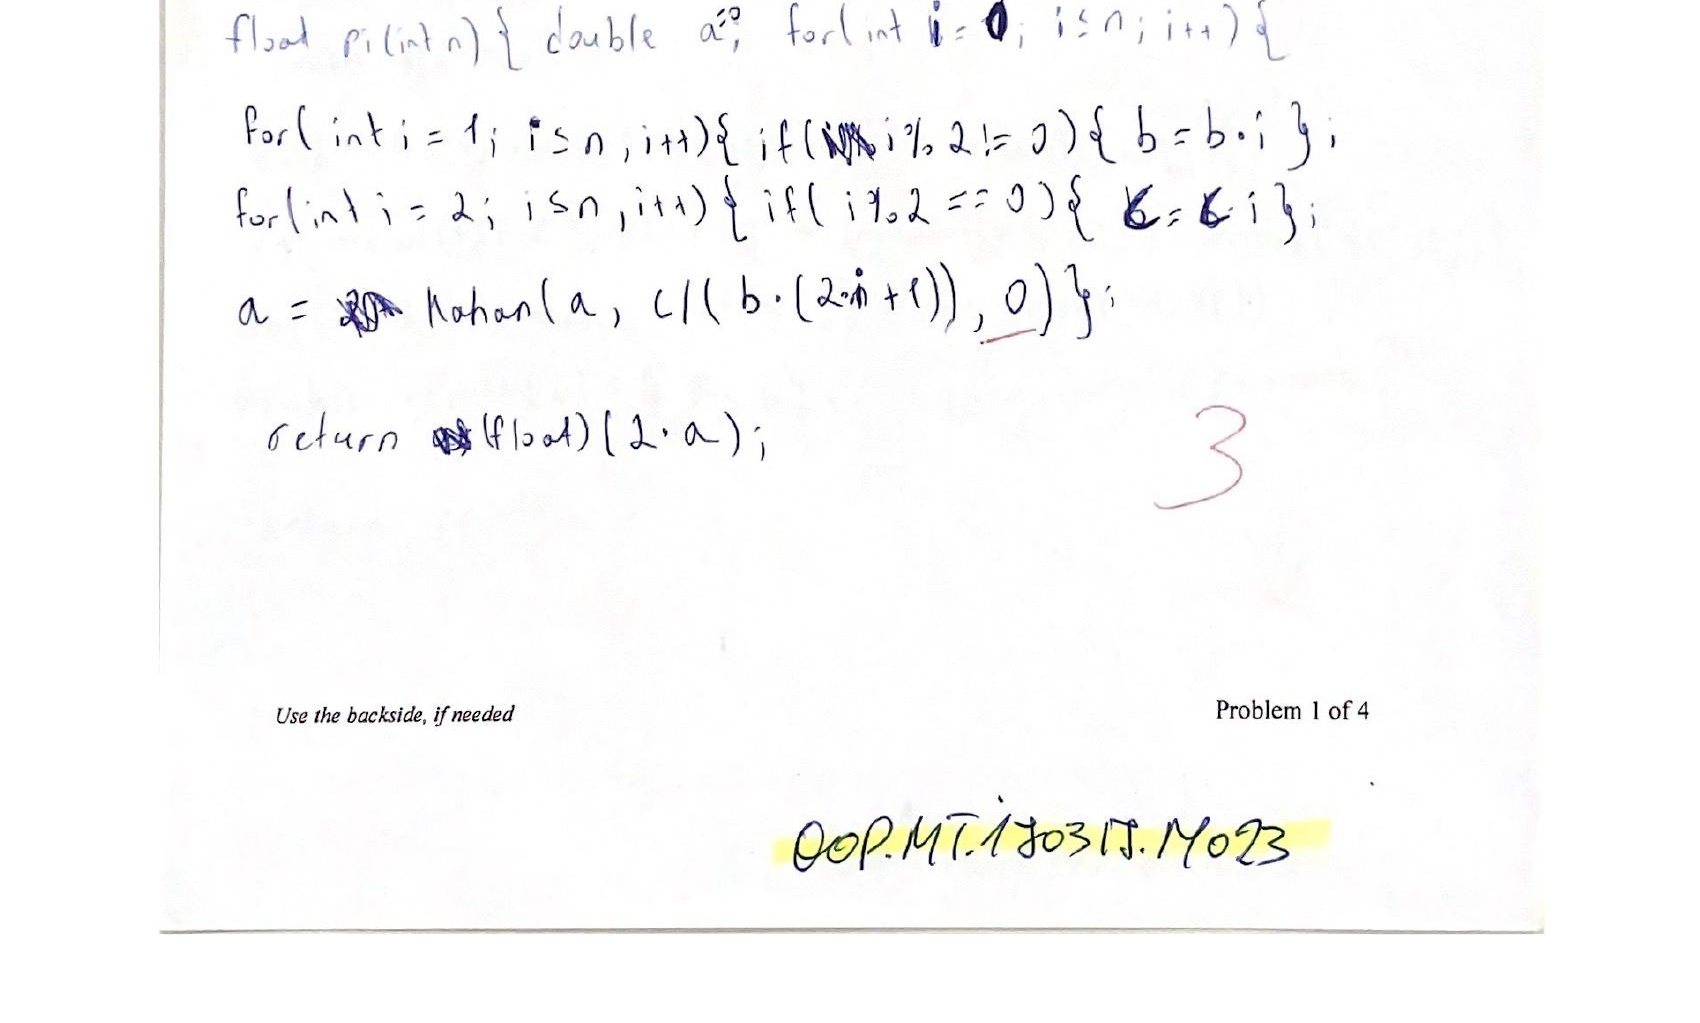 float pi(int n) { double a=0; for(int i=0; i≤n; i++) {
for( int i = 1; i≤n, i++){ if( i%2!=0){ b=b·i };
for(int i=2; i≤n, i++){ if( i%2==0){ c=c·i };
a = Kahan(a, c/(b·(2·i+1)), 0)};
return (float)(2·a);
3
Use the backside, if needed
Problem 1 of 4
OOP.MT.170317.M023